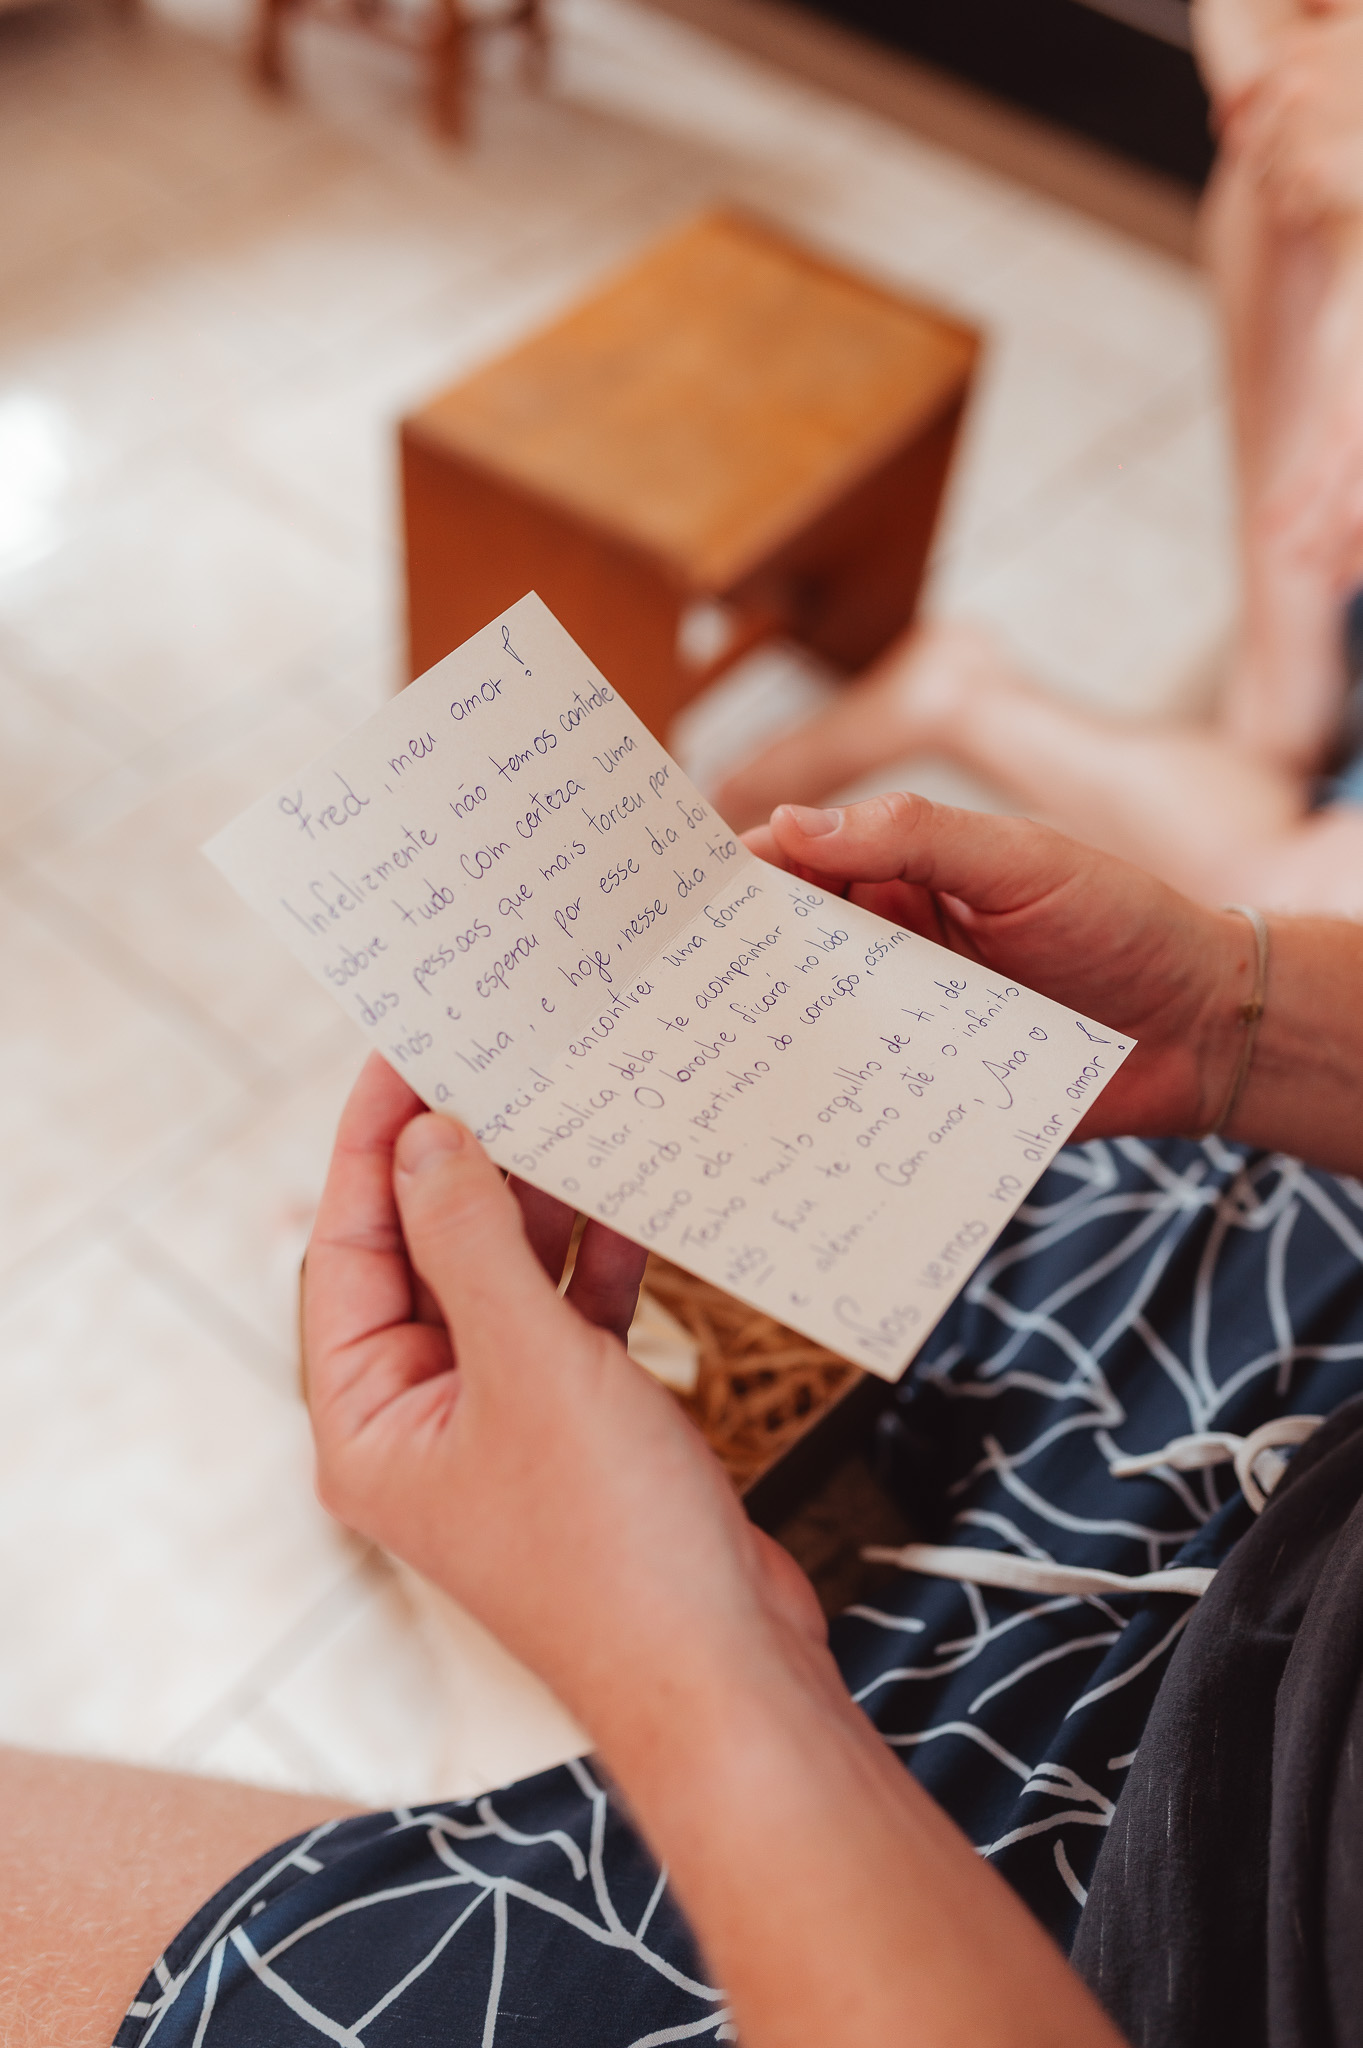 Fred, meu amor!
Infelizmente não temos controle
sobre tudo. Com certeza uma
das pessoas que mais torceu por
nós e esperou por esse dia foi
a Inha, e hoje, nesse dia tão
especial, encontrei uma forma
simbólica dela te acompanhar até
o altar. O broche ficará no lado
esquerdo, pertinho do coração, assim
como ela.
Tenho muito orgulho de ti, de
nós. Eu te amo até o infinito
e além... Com amor, Ana ♡
Nos vemos no altar, amor!